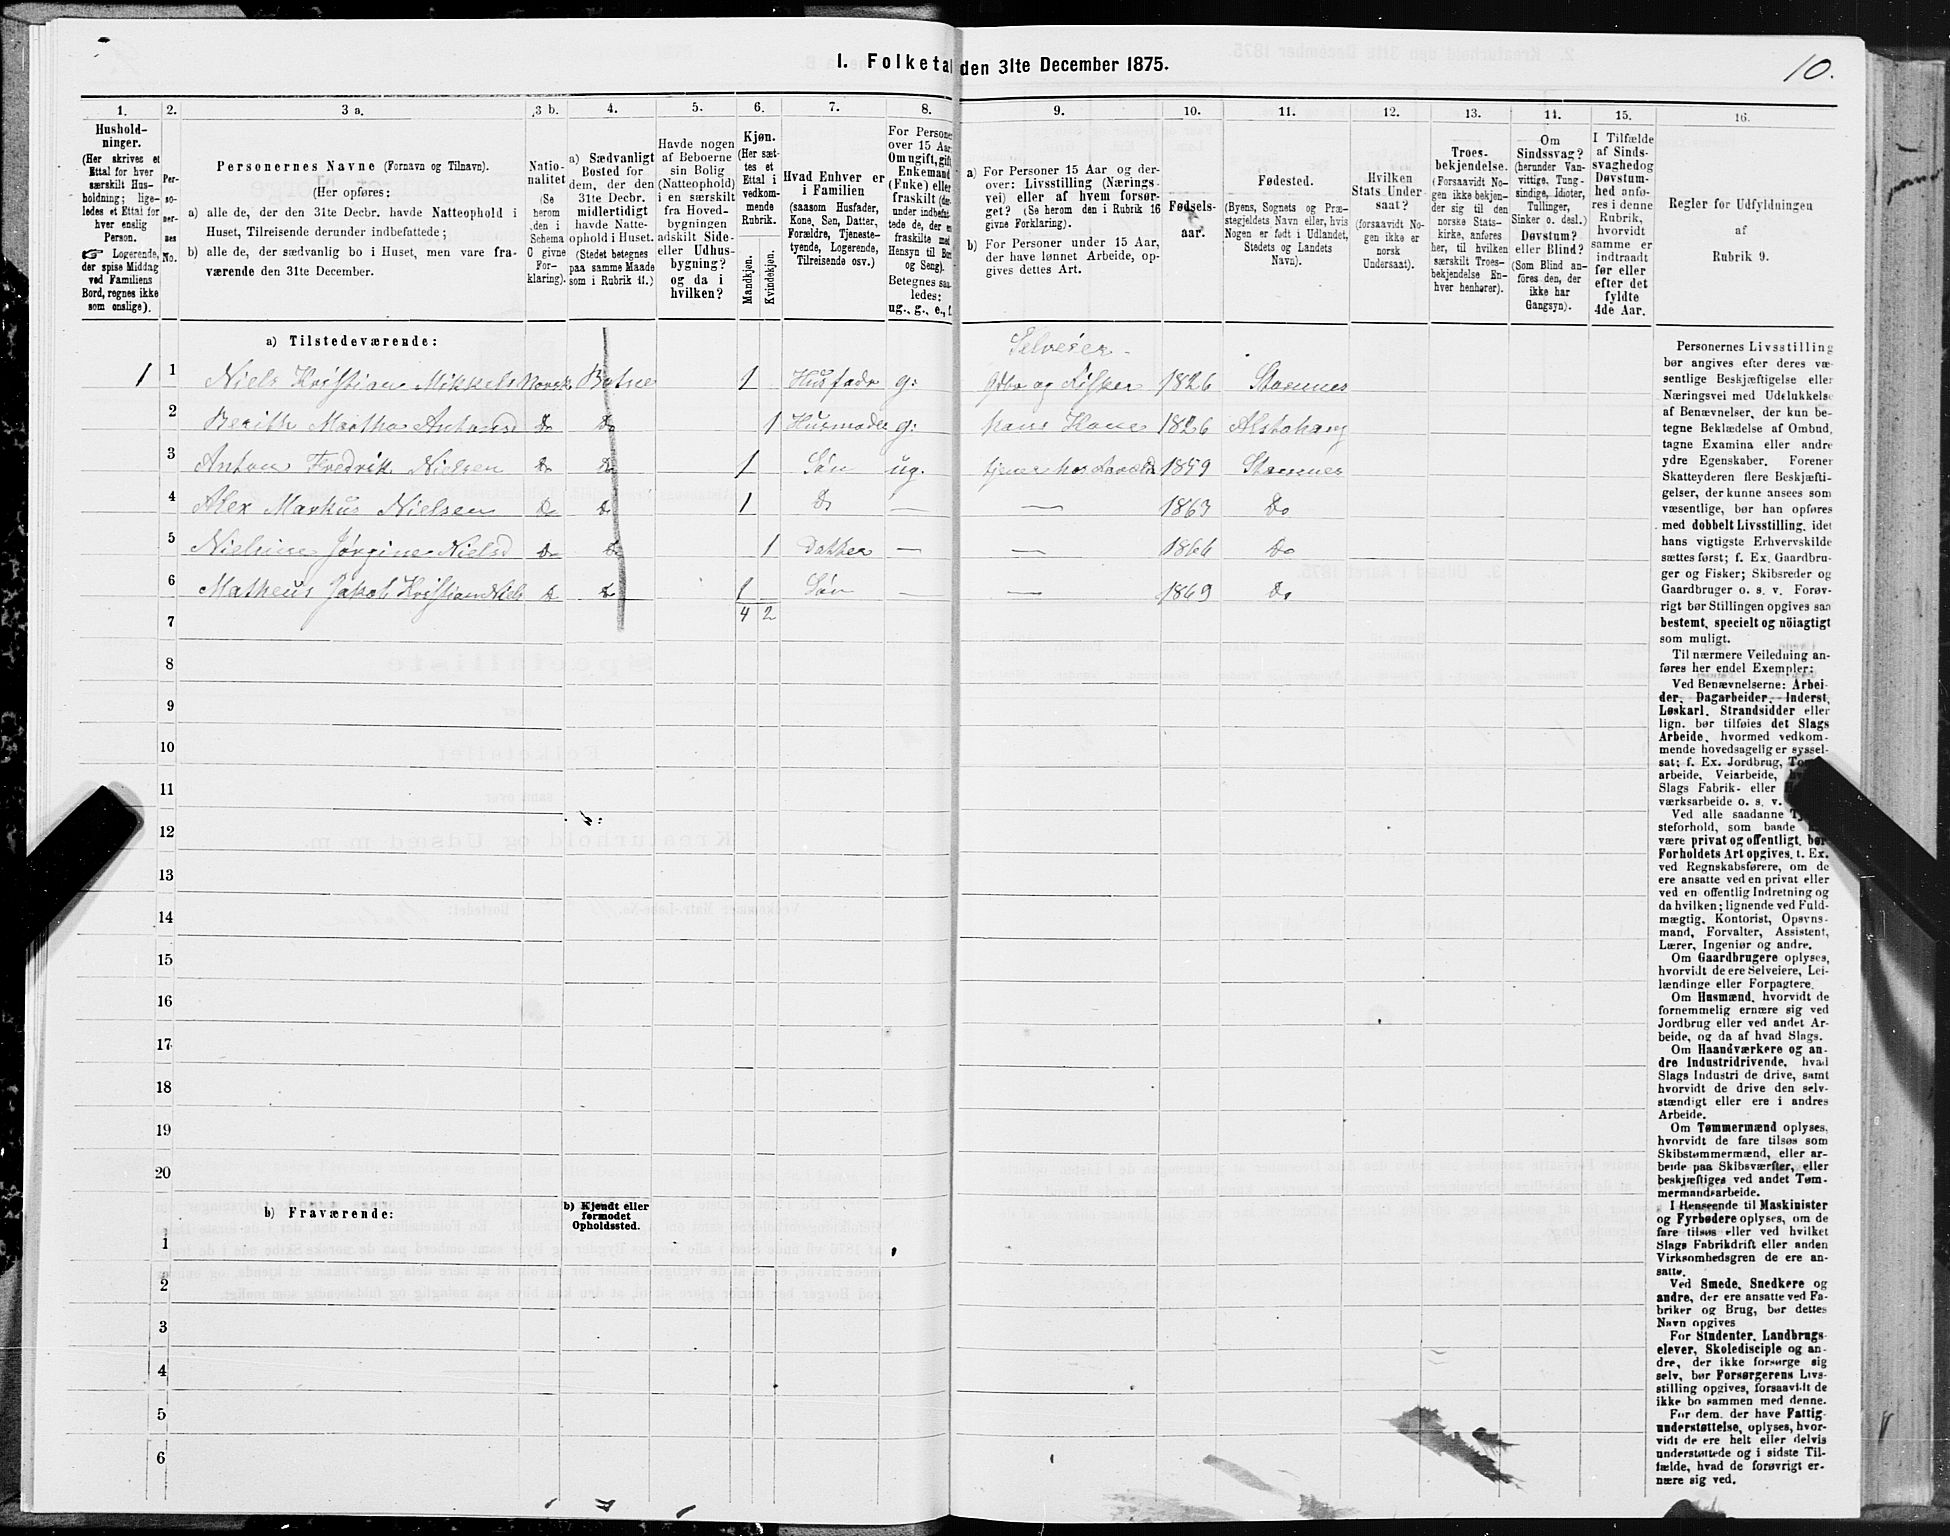 I. Folketal den 31te December 1875.
10.
1. 2. 3 a. 3 b. 4. 5. 6. 7. 8. 9. 10. 11. 12. 13. 14. 15. 16.
Husholdninger.
(Her skrives et
Ettal for hver
særskilt Husholdning; ligeledes et Ettal for
hver enslig
Person.
Logerende,
der spise Middag
ved Familiens
Bord, regnes ikke
som enslige).
Personernes No.
Personernes Navne (Fornavn og Tilnavn).
(Her opføres:
a) alle de, der den 31te Decbr. havde Natteophold i
Huset, Tilreisende derunder indbefattede;
b) alle de, der sædvanlig bo i Huset, men vare fraværende den 31te December.
Nationalitet
(Se
herom
den i
Schema
O givne
Forklaring).
a) Sædvanligt
Bosted for
dem, der den
31te Decbr.
midlertigt
havde Natteophold i Huset.
(Stedet betegnes
paa samme Maade
som i Rubrik 11.)
Havde nogen
af Beboerne
sin Bolig
(Natteophold)
i en særskilt
fra Hovedbygningen
adskilt Side-
eller Udhusbygning?
og da i
hvilken?
Kjøn.
(Her sættes et
Ettal i
vedkommende
Rubrik.
Mandkjøn.
Kvindekjøn.
Hvad Enhver er
i Familien
(saasom Husfader,
Kone, Søn, Datter,
Forældre, Tjenestetyende, Logerende,
Tilreisende osv.)
For Personer
over 15 Aar:
Om ugift, gift
Enkemand
(Enke) eller
fraskilt
ug., g., e., f.
a) For Personer 15 Aar og derover: Livsstilling (Næringsvei) eller af hvem forsørget? (Se herom den i Rubrik 16
givne Forklaring).
b) For Personer under 15 Aar,
der have lønnet Arbeide, opgives dettes Art.
Fødselsaar.
Fødested.
(Byens, Sognets og Præstegjeldets Navn eller, hvis
Nogen er født i Udlandet,
Stedets og Landets
Navn).
Hvilken
Stats Undersaat?
(forsaavidt Nogen ikke er
norsk
Undersaat).
Troesbekjendelse.
(Forsaavidt Nogen ikke bekjender sig til den
norske Statskirke, anføres
her, til hvilken
særskilt Troesbekjendelse Enhver henhører).
Om
Sindssvag?
(herunder Vanvittige, Tungsindige, Idioter,
Tullinger,
Sinker o. desl.)
Døvstum?
eller Blind?
(Som Blind anføres den, der
ikke har
Gangsyn).
I Tilfælde
af Sindssvaghed og
Døvstumhed anføres i denne
Rubrik,
hvorvidt
samme er
indtraadt
før eller
efter det
fyldte
4de Aar.
Regler for Udfyldningen
af
Rubrik 9.
a) Tilstedeværende:
Selveier
1 1 Niels Kristian Mikkels Norsk Botne 1 Husfadr g: Gdbr og Fisker 1826 Stamnes
2 Berith Martha Antonsd Do Do 1 Husmoder g: hans Kone 1826 Alstahaug
3 Anton Fredrik Nielsen Do Do 1 Søn ug. 1859 Stamnes
4 Alex Markus Nielsen Do Do 1 Do — — 1863 Do
5 Nielsine Jørgine Nielsd Do Do 1 Datter — — 1866 Do
6 Matheus Jakob Kristian Niels Do Do 1 Søn — — 1869 Do
7 4 2
8
9
10
11
12
13
14
15
16
17
18
19
20
b) Fraværende:
b) Kjendt eller
formodet
Opholdssted.
1
2
3
4
5
6
Personernes Livsstilling
bør angives efter deres væsentlige Beskjæftigelse eller
Næringsvei med Udelukkelse
af Benævnelser, der kun betegne Beklædelse af Ombud,
tagne Examina eller andre
ydre Egenskaber. Forener
Skatteyderen flere Beskjæftigelser, der kunne ansees som
væsentlige, bør han opføres
med dobbelt Livsstilling, idet
hans vigtigste Erhvervskilde
sættes først; f. Ex. Gaardbruger og Fisker; Skibsreder og
Gaardbruger o. s. v. Forøvrigt bør Stillingen opgives saa
bestemt, specielt og nöiagtigt
som muligt.
Til nærmere Veiledning anføres her endel Exempler:
Ved Benævnelserne: Arbeider, Dagarbeider, Inderst,
Løskarl, Strandsidder eller
lign. bør tilføies det Slags
Arbeide, hvormed vedkommende hovedsagelig er sysselsat; f. Ex. Jordbrug,
arbeide, Veiarbeide,
Slags Fabrik- eller
værksarbeide o. s. v.
Ved alle saadanne
steforhold, som baade
være privat og offentligt, bør
Forholdets Art opgives, t. Ex.
ved Regnskabsførere, om de
ere ansatte ved en privat eller
ved en offentlig Indretning og
da hvilken; lignende ved Fuldmægtig, Kontorist, Opsynsmand, Forvalter, Assistent,
Lærer, Ingeniør og andre.
Om Gaardbrugere oplyses,
hvorvidt de ere Selveiere, Leilændinge eller Forpagtere.
Om Husmænd, hvorvidt de
fornemmelig ernære sig ved
Jordbrug eller ved andet Arbeide, og da af hvad Slags.
Om Haandværkere og andre Industridrivende, hvad
Slags Industri de drive, samt
hvorvidt de drive den selvstændigt eller ere i andres
Arbeide.
Om Tømmermænd oplyses,
hvorvidt de fare tilsøs som
Skibstømmermænd, eller arbeide paa Skibsværfter, eller
beskjæftiges ved andet Tømmermandsarbeide.
I Henseende til Maskinister
og Fyrbødere oplyses, om de
fare tilsøs eller ved hvilket
Slags Fabrikdrift eller anden
Virksomhedsgren de ere ansatte.
Ved Smede, Snedkere og
andre, der ere ansatte ved Fabriker og Brug, bør dettes
Navn opgives
For Studenter, Landbrugselever, Skoledisciple og andre, der ikke forsørge sig
selv, bør Forsørgerens Livsstilling opgives, forsaavidt de
ikke bo sammen med denne.
For dem, der have Fattigunderstøttelse, oplyses, hvorvidt de ere helt eller delvis
understøttede og i sidste Tilfælde, hvad de forøvrigt ernære sig ved.